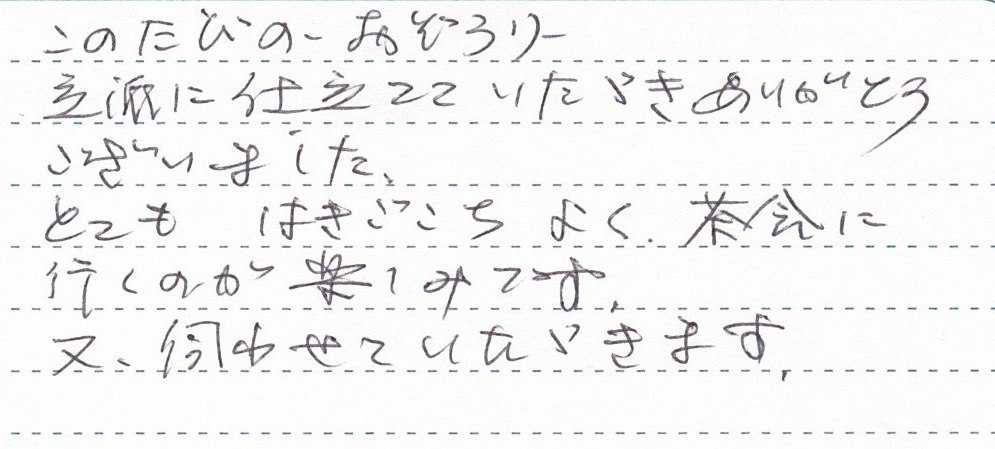 このたびの おぞうり
立派に仕立てていただきありがとう
ございました、
とても はきごこち よく、茶会に
行くのが楽しみです。
又、伺わせていただきます。